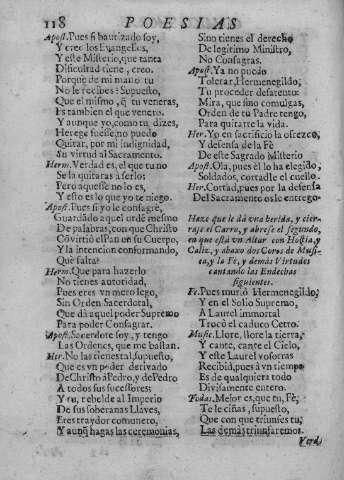 118 POESIAS
Apost. Pues si bautizado soy,
Y creo los Evangelios,
Y este Misterio, que tanta
Dificultad tiene, creo.
Porque de mi mano tu
No le recibes? Supuesto,
Que el mismo, q̃ tu veneras,
Es tambien el que venero.
Y aunque yo, como tu dizes,
Herege fuesse, no puedo
Quitar, por mi indignidad,
Su virtud al Sacramento.
Herm. Verdad es, el que tu no
Se la quitaras a serlo:
Pero aquesse no lo es,
Y esto es lo que yo te niego.
Apost. Pues si yo le consagrè,
Guardãdo aquel ordẽ mesmo
De palabras, con que Christo
Cõvirtiò el Pan en su Cuerpo,
Y la intencion conformando,
Què falta?
Herm. Que para hazerlo
No tienes autoridad,
Pues eres vn mero lego,
Sin Orden Sacerdotal,
Que dà aquel poder Supremo
Para poder Consagrar.
Apost. Sacerdote soy, y tengo
Las Ordenes, que me bastan.
Her. No las tienes tal, supuesto,
Que es vn poder derivado
De Christo à Pedro, y de Pedro
A todos sus sucessores:
Y tu, rebelde al Imperio
De sus soberanas Llaves,
Eres traydor comunero,
Y aunq̃ hagas las ceremonias,
Sino tienes el derecho
De legitimo Ministro,
No Consagras.
Apost. Ya no puedo
Tolerar, Hermenegildo,
Tu proceder desatento:
Mira, que sino comulgas,
Orden de tu Padre tengo,
Para quitarte la vida.
Her. Yo en sacrificio la ofrezco,
Y defensa de la Fè
De este Sagrado Misterio
Apost. Ola, pues èl lo ha elegido,
Soldados, cortadle el cuello.
Her. Cortad, pues por la defensa
Del Sacramento os le entrego.
Haze que le dà vna herida, y cierrase
el Carro, y abrese el segundo,
en que està vn Altar con Hostia, y
Caliz, y abaxo dos Coros de Musica,
y la Fè, y demàs Virtudes
cantando las Endechas
siguientes.
Fè. Pues muriò Hermenegildo,
Y en el Solio Supremo,
A Laurel immortal
Trocò el caduco Cetro.
Music. Llore, llore la tierra,
Y cante, cante el Cielo,
Y este Laurel vosotras
Recibid, pues à vn tiempo
Es de qualquiera todo
Divisamente entero.
Todas. Mejor es, que tu, Fè,
Te le ciñas, supuesto,
Que con que triunfes tu,
Las demàs triunfaremos.
Verd.